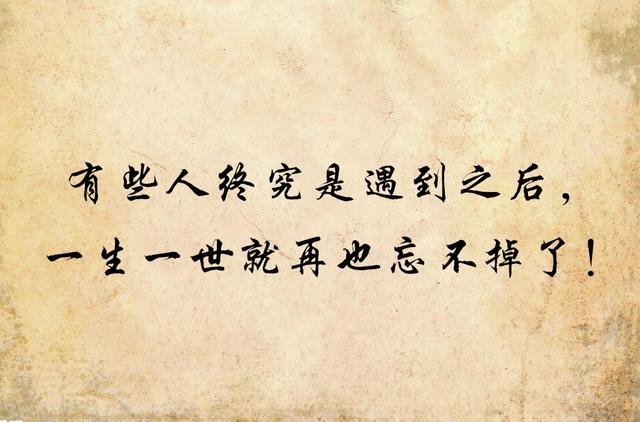 有些人终究是遇到之后，
一生一世就再也忘不掉了！